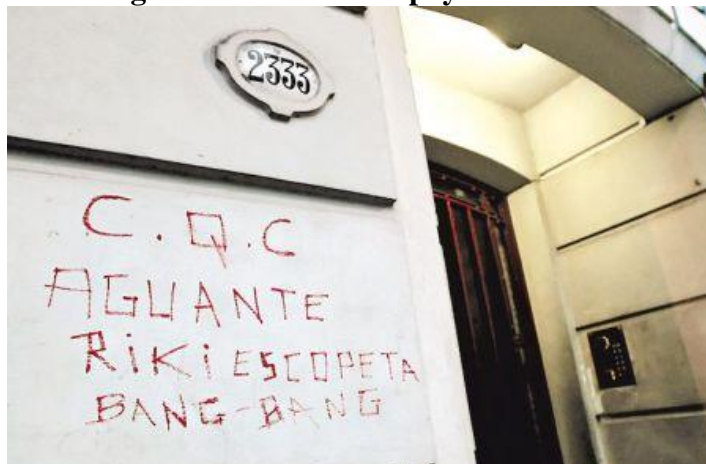 2333
C.Q.C
AGUANTE
RiKi ESCOPETA
BANG-BANG